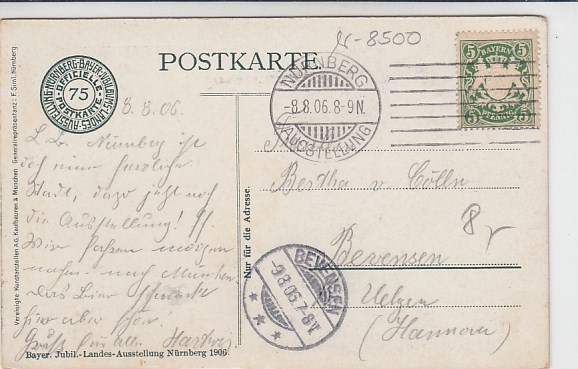 POSTKARTE.
N-8500
NÜRNBERG-BAYER-JUBILÄUMS-LANDES-AUSSTELLUNG
OFFICIELLE
75
POSTKARTE
NÜRNBERG
-8.8.06.8-9N.
AUSSTELLUNG
5 BAYERN 5
5 PFENNIG 5
8.8.06.
L. L. Nürnberg ist
doch eine herrliche
Stadt, dazu jetzt noch
die Ausstellung!
Wir fahren morgen
nach München
das Bier schmeckt
hier aber schon.
Gruss Euch allen Hartwig
Bertha v. Cölln
Bevensen
Uelzen
(Hannover)
8
BEVENSEN
-9.8.06.7-8V.
Nur für die Adresse.
Vereinigte Kunstanstalten A.G. Kaufbeuren & München Generalrepräsentanz: E. Siml, Nürnberg
Bayer. Jubil.-Landes-Ausstellung Nürnberg 1906.